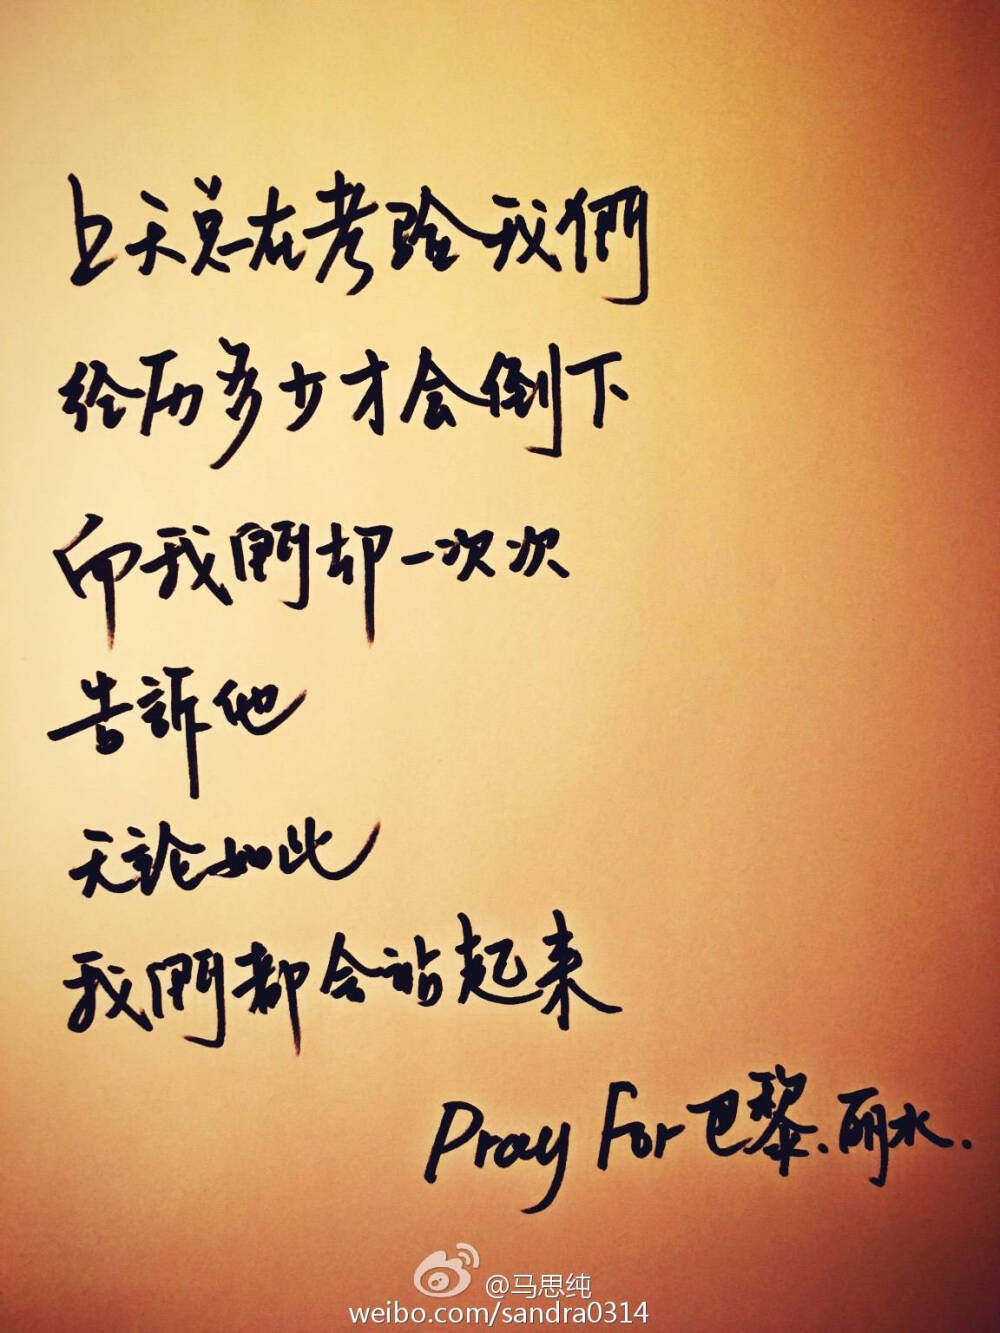 上天总在考验我們
经历多少才会倒下
而我們却一次次
告訴他
无論如此
我們都会站起来
Pray For 巴黎.丽水.
@马思纯
weibo.com/sandra0314